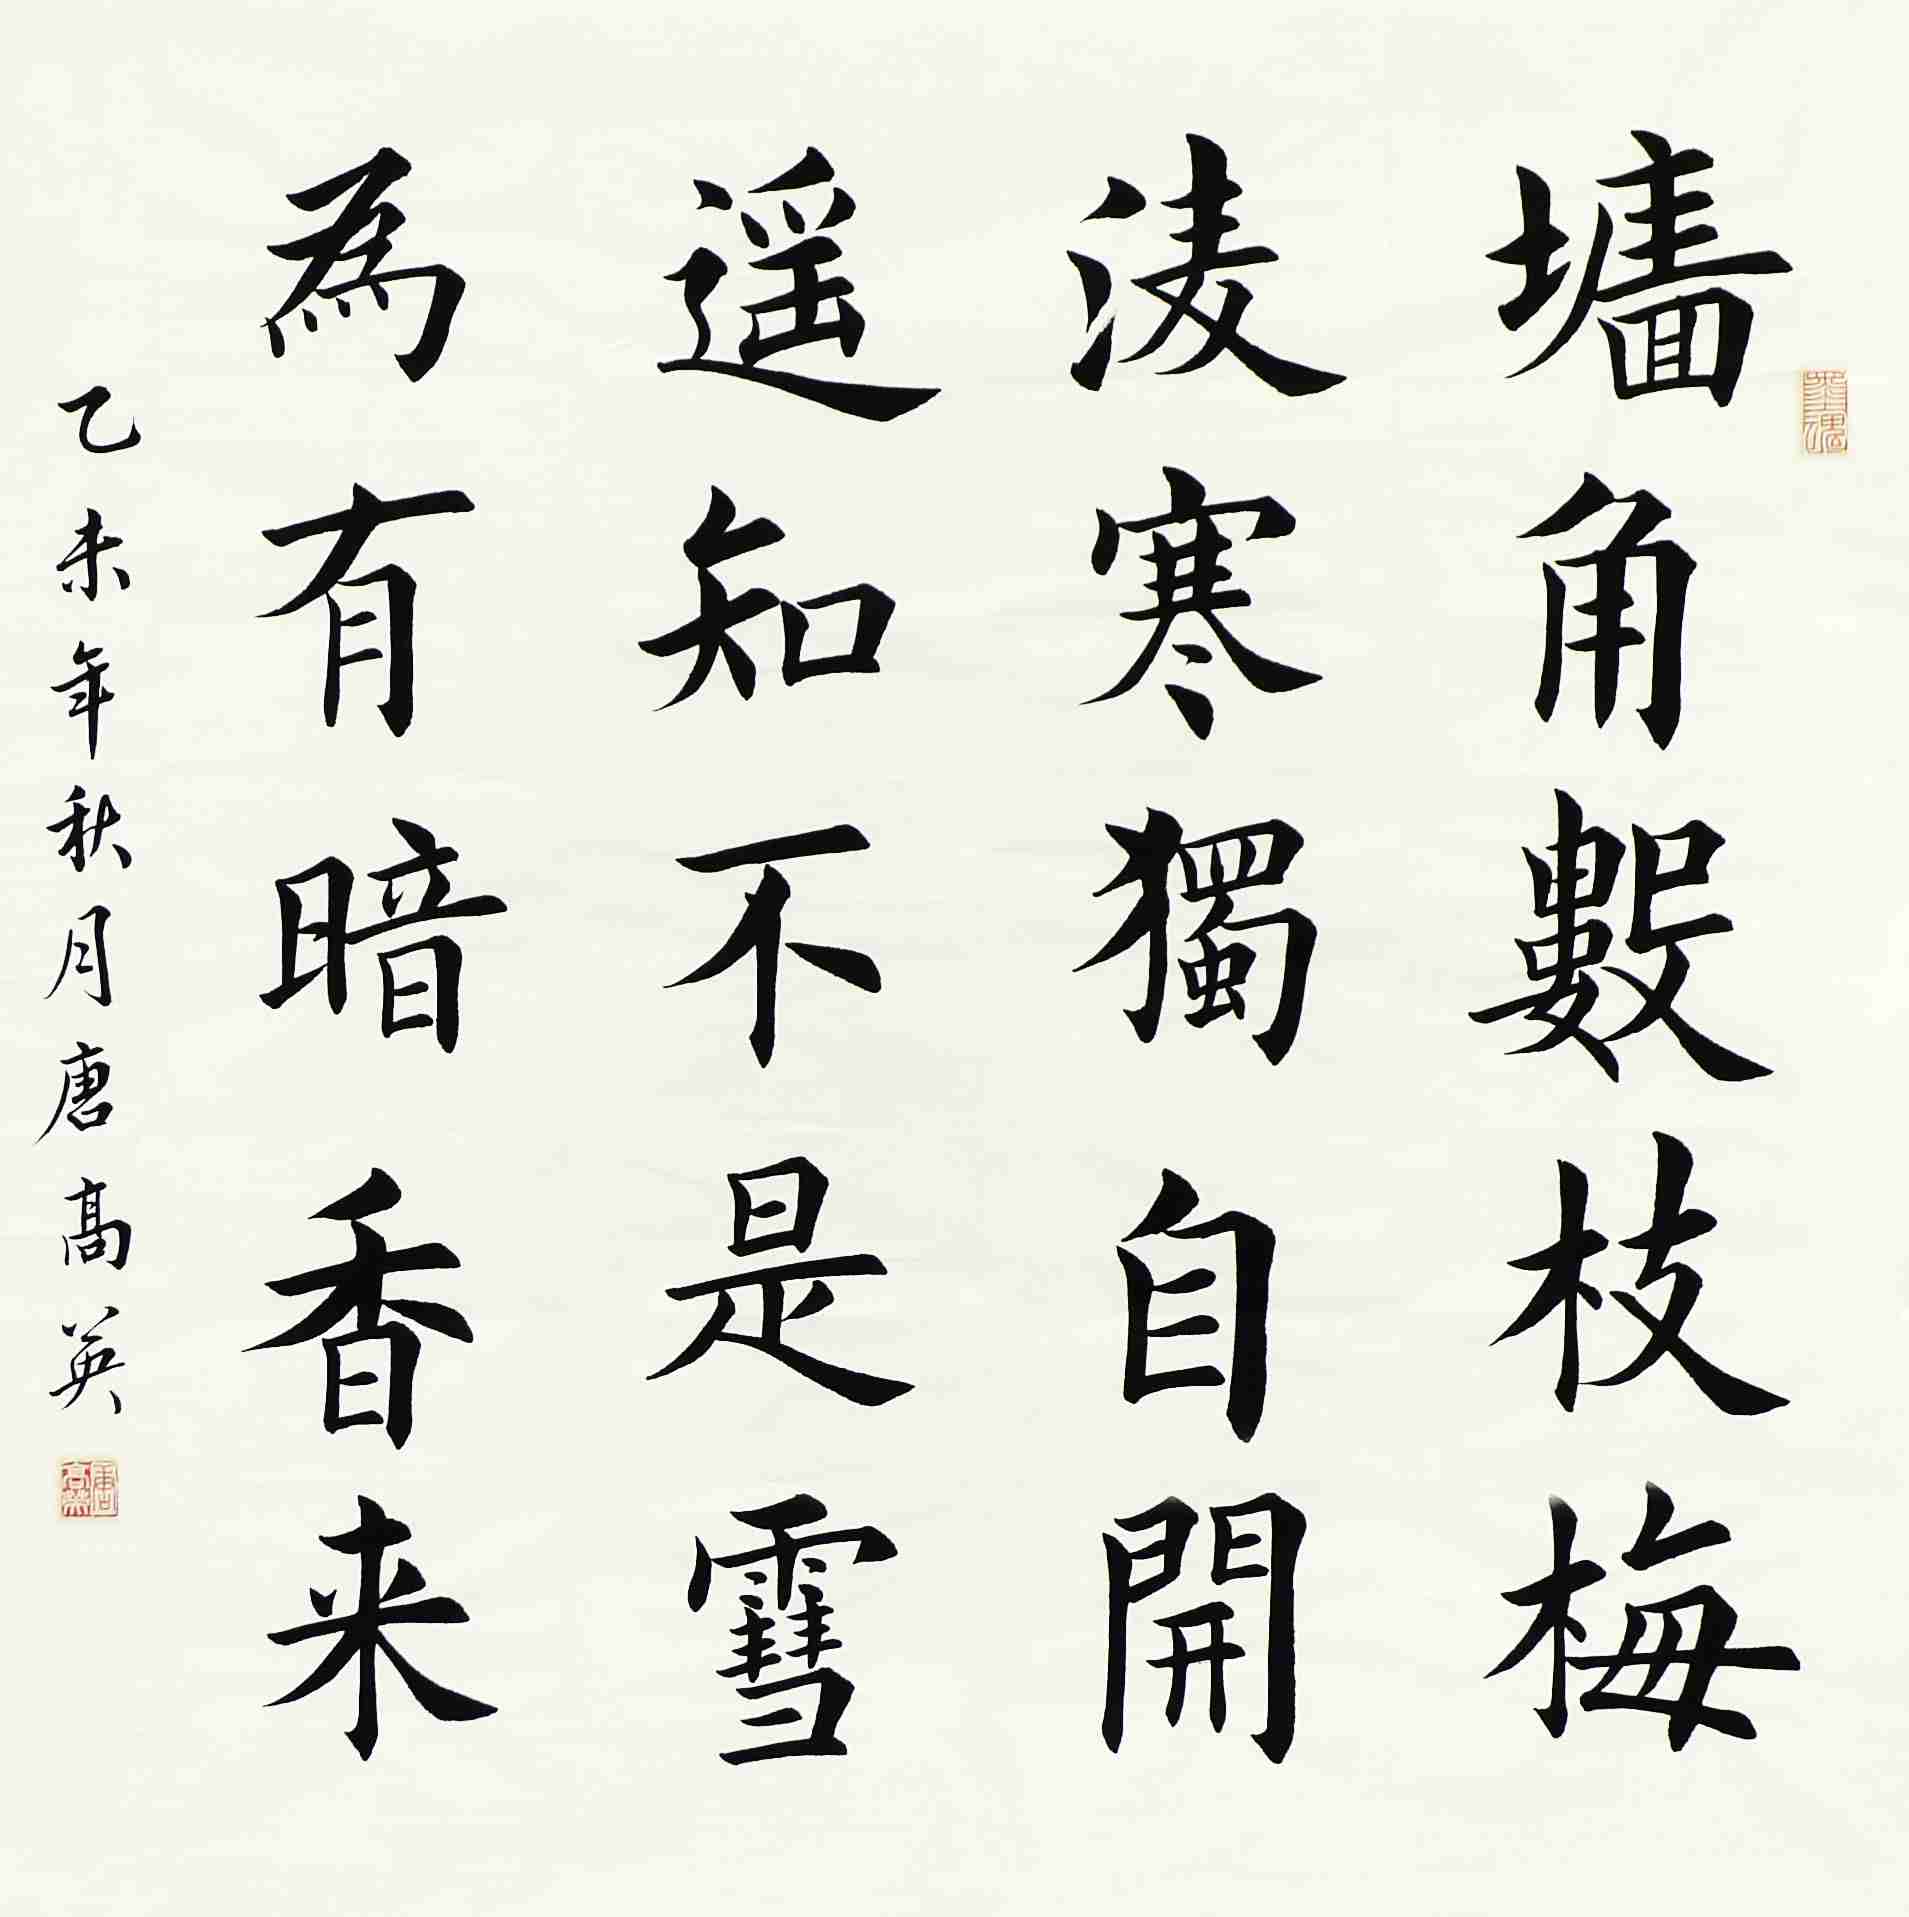 墻角數枝梅
淩寒獨自開
遥知不是雪
為有暗香来
乙未年秋月唐高英